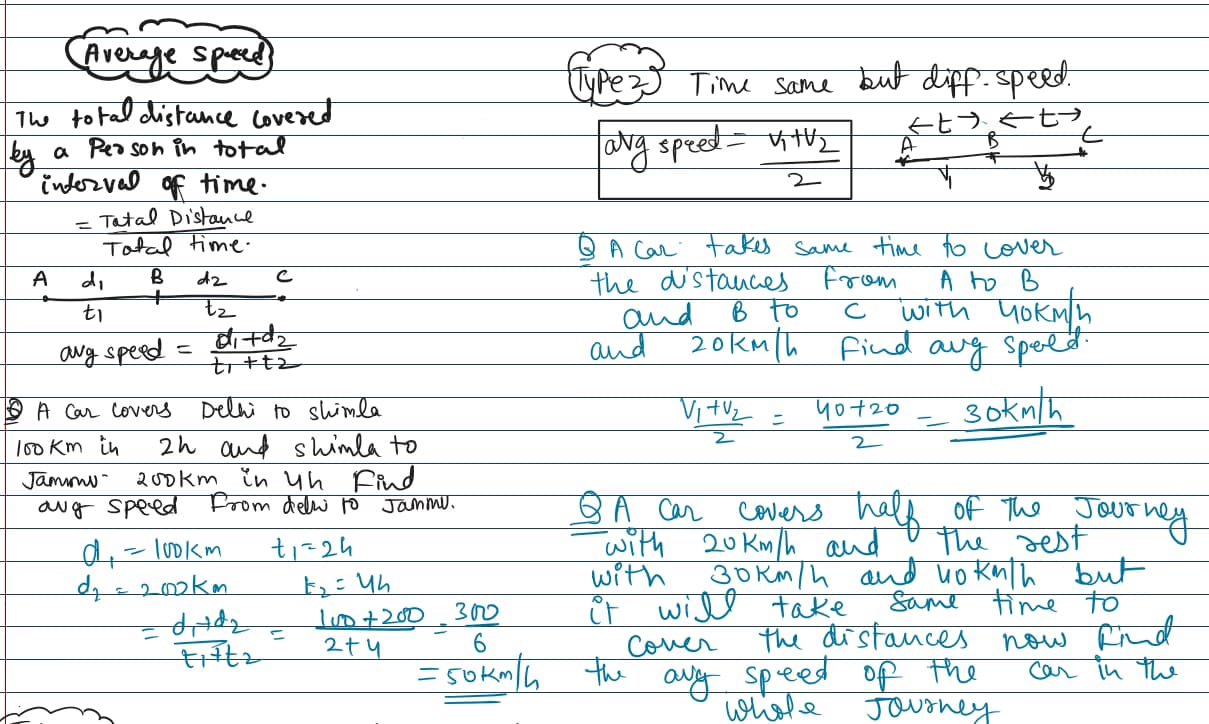 Average speed
The total distance covered
by a Person in total
interval of time.
= Total Distance
Total time.
A d₁ B d2 C
t1 t2
avg speed = d1+d2
t1+t2
Q A Car covers Delhi to shimla
100 Km in 2h and shimla to
Jammu 200Km in 4h Find
avg speed from delhi to Jammu.
d₁ = 100Km t₁=2h
d₂ = 200Km t₂=4h
= d₁+d2 = 100+200 = 300
t₁+t2 2+4 6
= 50Km/h
Type 2 Time same but diff. speed.
avg speed = V1+V2
2
←t→ ←t→
A B C
V1 V2
Q A Car takes same time to cover
the distances from A to B
and B to C with 40Km/h
and 20Km/h Find avg speed.
V1+V2 = 40+20 = 30Km/h
2 2
Q A Car covers half of the Journey
with 20Km/h and the rest
with 30Km/h and 40Km/h but
it will take same time to
cover the distances now find
the avg speed of the car in the
whole Journey